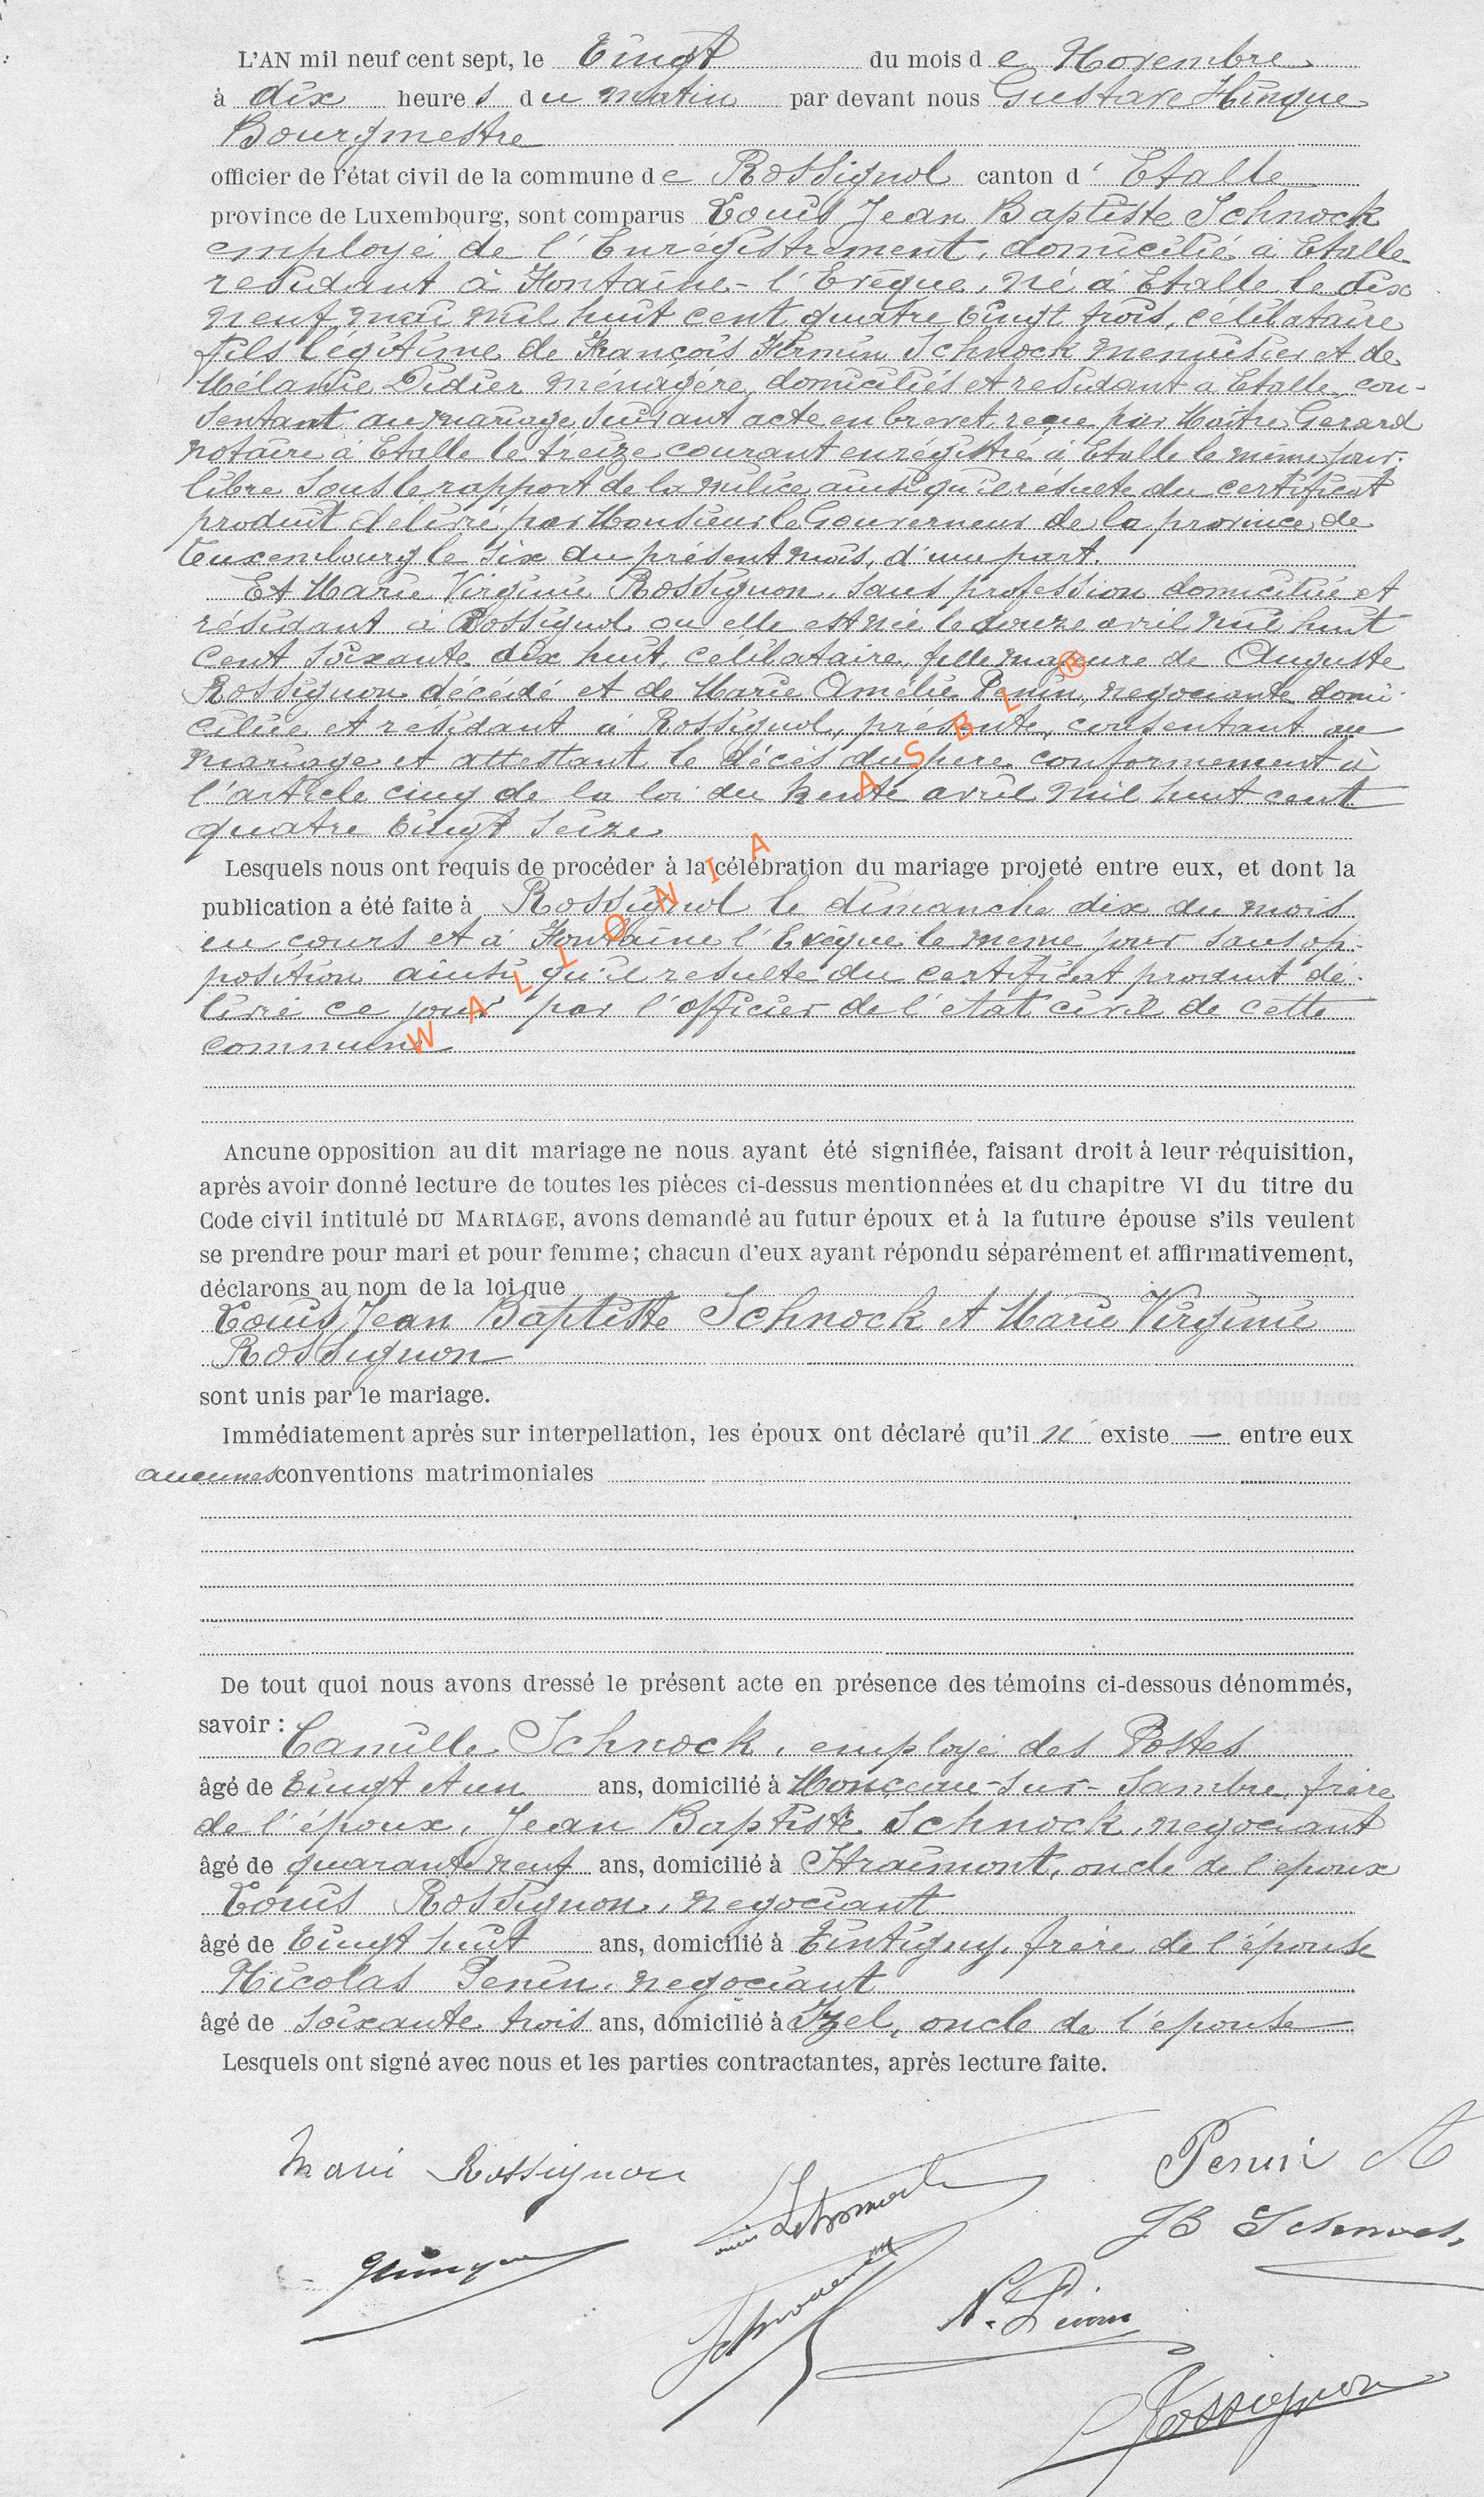 L'AN mil neuf cent sept, le Vingt du mois d e Novembre
à dix heure s du matin par devant nous Gustave Hinque
Bourgmestre
officier de l'état civil de la commune de Rossignol canton d' Etalle
province de Luxembourg, sont comparus Louis Jean Baptiste Schnock
employé de l'Enrégistrement, domicilié à Etalle
residant à Fontaine-l'Evêque, né à Etalle le dix
neuf mai mil huit cent quatre vingt trois, célibataire
fils légitime de François Firmin Schnock menuisier et de
Mélanie Didier ménagère, domiciliés et residant a Etalle, con-
sentant au mariage suivant acte en brevet reçu par Maître Gerard
notaire à Etalle le treize courant enrégistré à Etalle le même jour.
libre sous le rapport de la milice ainsi qu'il résulte du certificat
produit délivré par Monsieur le Gouverneur de la province de
Luxembourg le six du présent mois, d'une part.
Et Marie Virginie Rossignon, sans profession domiciliée et
résidant à Rossignol ou elle est née le douze avril mil huit
cent soixante dix huit, celibataire, fille majeure de Auguste
Rossignon décédé et de Marie Amélie Penin, negociante domi-
ciliée et résidant à Rossignol, présente, consentant au
mariage et attestant le décès du père conformement à
l'article cinq de la loi du trente avril mil huit cent
quatre vingt seize
Lesquels nous ont requis de procéder à la célébration du mariage projeté entre eux, et dont la
publication a été faite à Rossignol le dimanche dix du mois
en cours et à Fontaine l'Evêque le meme jour sans op-
position ainsi qu'il resulte du certificat produit dé-
livré ce jour par l'officier de l'etat civil de cette
commune
WALLONIA ASBL ®
Aucune opposition au dit mariage ne nous ayant été signifiée, faisant droit à leur réquisition,
après avoir donné lecture de toutes les pièces ci-dessus mentionnées et du chapitre VI du titre du
Code civil intitulé DU MARIAGE, avons demandé au futur époux et à la future épouse s'ils veulent
se prendre pour mari et pour femme; chacun d'eux ayant répondu séparément et affirmativement,
déclarons au nom de la loi que
Louis Jean Baptiste Schnock et Marie Virginie
Rossignon
sont unis par le mariage.
Immédiatement après sur interpellation, les époux ont déclaré qu'il n' existe — entre eux
aucunes conventions matrimoniales
De tout quoi nous avons dressé le présent acte en présence des témoins ci-dessous dénommés,
savoir :
Camille Schnock, employé des Postes
âgé de Vingt et un ans, domicilié à Monceau-sur-Sambre, frère
de l'époux, Jean Baptiste Schnock, negociant
âgé de quarante neuf ans, domicilié à Straimont, oncle de l'epoux
Louis Rossignon, negociant
âgé de Vingt huit ans, domicilié à Tintigny, frère de l'épouse
Nicolas Penin, negociant
âgé de soixante trois ans, domicilié à Izel, oncle de l'epouse
Lesquels ont signé avec nous et les parties contractantes, après lecture faite.
Marie Rossignon
Penin A
JB Schnock
N. Penin
L Rossignon